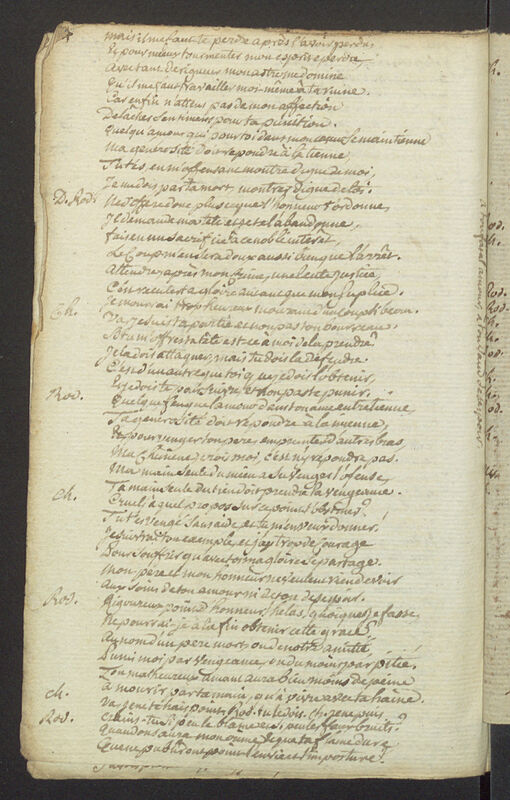 mais il me faut te perdre après l'avoir perdu,
Et pour mieux tourmenter mon esprit éperdu
Avec tant de rigueur mon astre me domine
Qu'il me faut travailler moi-même à ta ruine.
Car enfin n'attens pas de mon affection
De lâches sentimens pour ta punition.
Quelqu'amour qui pour toi dans mon coeur se maintienne
Ma générosité doit répondre à la tienne,
Tu t'es, en m'offensant montré digne de moi,
Je me dois par ta mort, montrer digne de toi.
D. Rod. Ne differe donc plus ce que l'honneur t'ordonne,
Il demande ma tête et je te l'abandonne,
fais en un sacrifice à ce noble intérêt,
Le coup m'en sera doux aussi bien que l'arrêt.
Attendre après mon crime, une lente justice,
C'est reculer ta gloire autant que mon suplice.
Je mourrai trop heureux mourant d'un coup si beau.
Ch. Va, je suis ta partie et non pas ton bourreau.
Si tu m'offres ta tête est-ce à moi de la prendre?
Je la dois attaquer, mais tu dois la défendre.
C'est d'un autre que toi qu'il me faut l'obtenir,
Et je dois te poursuivre, et non pas te punir.
Rod. Quelque feu que l'amour dans ton ame entretienne,
Ta générosité doit répondre à la mienne,
Et pour venger ton père emprunter d'autres bras,
Ma Chimene, crois moi, c'est n'y répondre pas.
Ma main seule du mien a su venger l'offense,
Ta main seule du tien doit prendre la vengeance.
Ch. Cruel! à quel propos sur ce point t'obstiner?
Tu t'es vengé sans aide, et tu m'en veux donner.
Je suivrai ton exemple, et j'ai trop de courage
Pour souffrir qu'avec toi ma gloire se partage.
Mon père et mon honneur ne veulent rien devoir
Aux soins de ton amour ni de ton desespoir.
Rod. Rigoureux point d'honneur! helas, quoique je fasse
Ne pourrai-je à la fin obtenir cette grace?
Au nom d'un pere mort, ou de notre amitié,
Puni moi par vengeance, ou du moins par pitié.
Ton malheureux amant aura bien moins de peine
à mourir par ta main, qu'à vivre avec ta haine.
ch. Va, je ne te hais point. Rod. tu le dois. Ch. je ne puis
Rod. Crains-tu si peu le blâme et si peu les faux bruits?
Quand on saura mon crime et que ta flamme dure
Que ne publieront point l'envie et l'imposture!